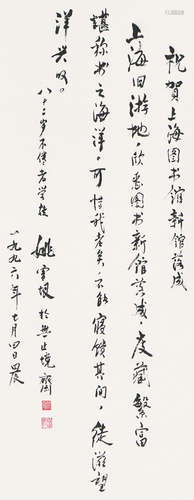 祝贺上海图书馆新馆落成
上海旧游地，欣看图书新馆落成，庋藏繁富
堪称书之海洋，可惜我老矣，不能寝馈其间，徒滋望
洋兴叹。
八十二岁不倦者学徒 姚雪垠 於无止境斋
一九九六年七月四日晨